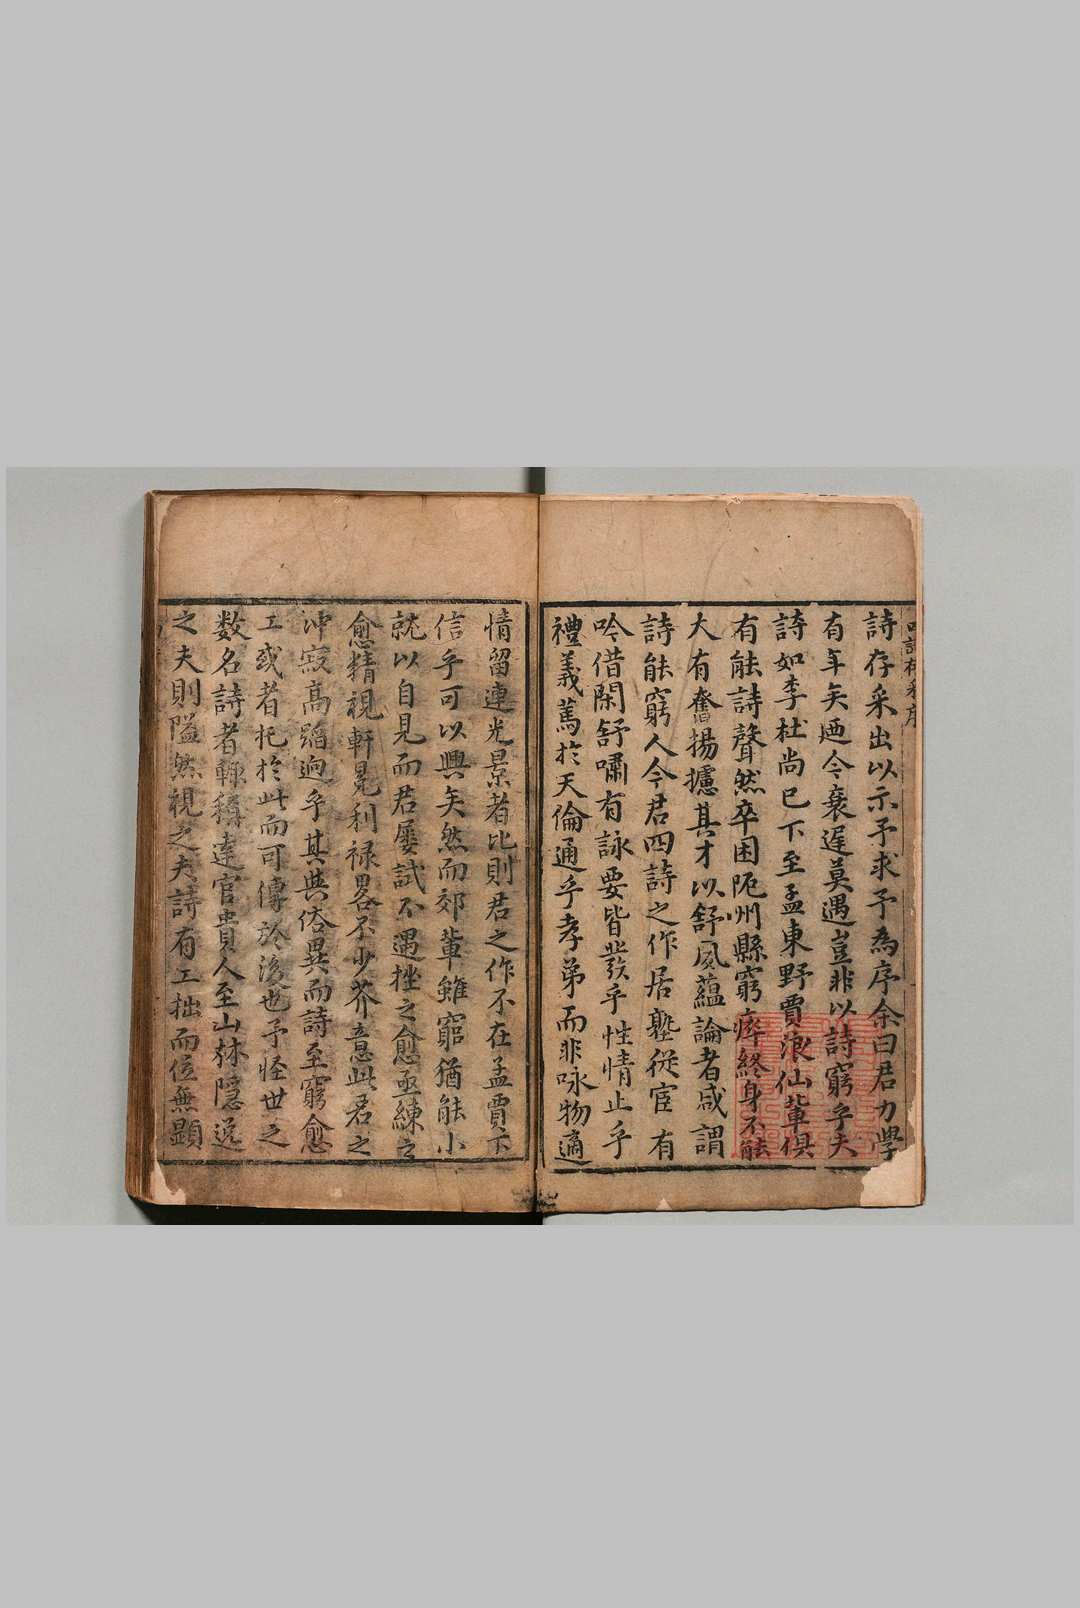 四詩存采序
詩存采出以示予求予為序余曰君力學
有年矣迺今衰遲莫遇豈非以詩窮乎夫
詩如李杜尚已下至孟東野賈浪仙輩俱
有能詩聲然卒困阨州縣窮瘁終身不能
大有奮揚攄其才以舒風蘊論者咸謂
詩能窮人今君四詩之作居塾從宦有
吟借閑舒嘯有詠要皆發乎性情止乎
禮義篤於天倫通乎孝弟而非咏物適
情留連光景者比則君之作不在孟賈下
信乎可以興矣然而郊輩雖窮猶能小
就以自見而君屢試不遇挫之愈亟練之
愈精視軒冕利禄畧不少芥意此君之
冲寂高蹈迥乎其與俗異而詩至窮愈
工或者托於此而可傳於後也予怪世之
数名詩者輙稱達官貴人至山林隱逸
之夫則隘然視之夫詩有工拙而位無顯